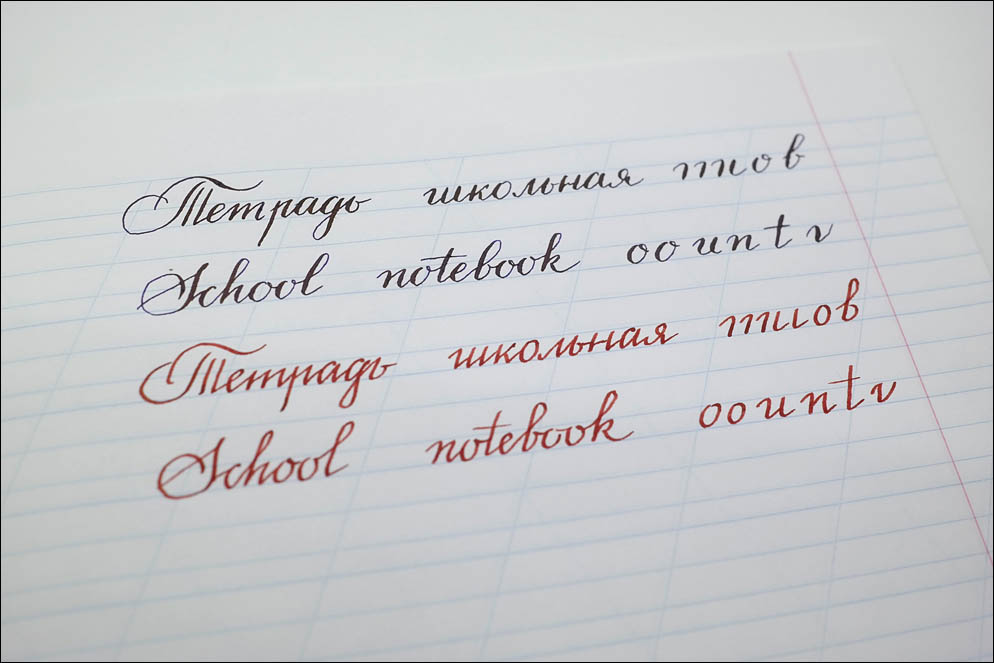 Тетрадь школьная т и о в
School notebook o o u n t v
Тетрадь школьная т и о в
School notebook o o u n t v